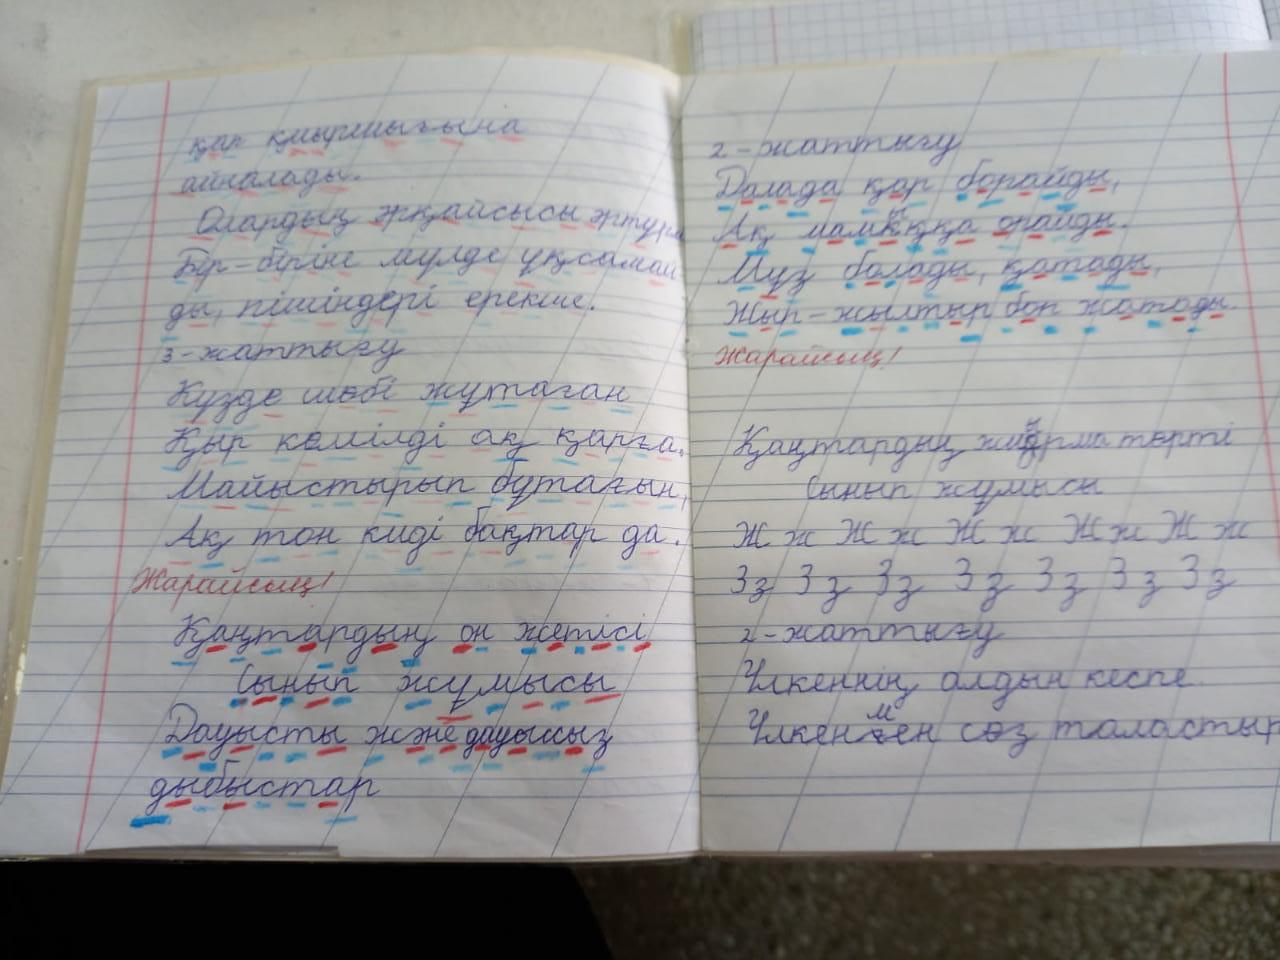 қар қиыршығына
айналады.
Олардың әрқайсысы әртүрлі
Бір-біріне мүлде ұқсамай
ды, пішіндері ерекше.
3-жаттығу
Күзде шөбі жұтаған
Қыр көмілді ақ қарға.
Майыстырып бұтағын,
Ақ тон киді бақтар да.
Жарайсың!
Қаңтардың он жетісі
Сынып жұмысы
Дауысты және дауыссыз
дыбыстар
2-жаттығу
Далада қар борайды,
Ақ мамыққа орайды.
Мұз болады, қатады,
Жып-жылтыр боп жатады.
Жарайсың!
Қаңтардың жиырма төрті
Сынып жұмысы
Ж ж Ж ж Ж ж Ж ж Ж ж
З з З з З з З з З з З з З з
2-жаттығу
Үлкеннің алдын кеспе
Үлкенмен сөз таластыр